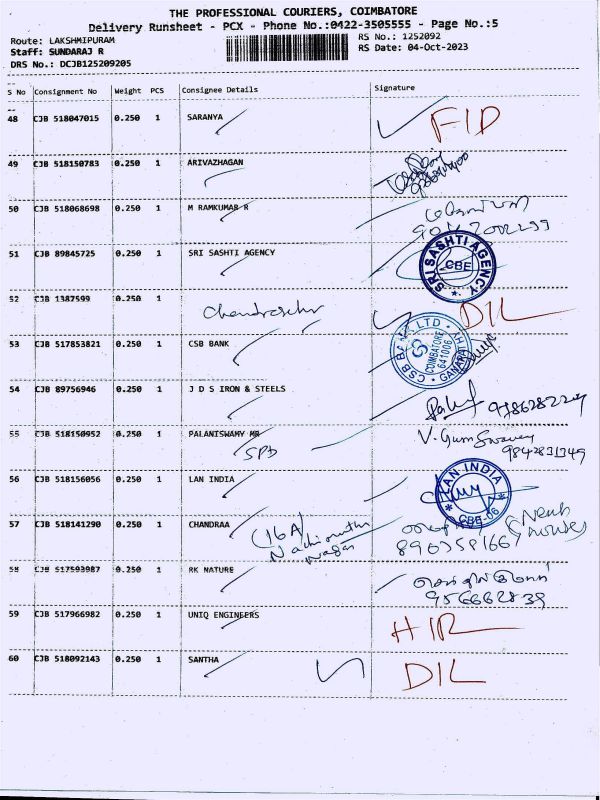 THE PROFESSIONAL COURIERS, COIMBATORE
Delivery Runsheet - PCX - Phone No.:0422-3505555 - Page No.:5
Route: LAKSHMIPURAM RS No.: 1252092
Staff: SUNDARAJ R RS Date: 04-Oct-2023
DRS No.: DCJB125209205
S No Consignment No Weight PCS Consignee Details Signature
48 CJB 518047015 0.250 1 SARANYA FID
49 CJB 518150783 0.250 1 ARIVAZHAGAN
50 CJB 518068698 0.250 1 M RAMKUMAR R
51 CJB 89845725 0.250 1 SRI SASHTI AGENCY SRI SASHTI AGENCY CBE
52 CJB 1387599 0.250 1 Chandrasekr DIL
53 CJB 517853821 0.250 1 CSB BANK CSB BANK LTD COIMBATORE 641006
54 CJB 89756946 0.250 1 J D S IRON & STEELS
55 CJB 518150952 0.250 1 PALANISWAMY MR SPB 9842831349
56 CJB 518156056 0.250 1 LAN INDIA LAN INDIA CBE-06
57 CJB 518141290 0.250 1 CHANDRAA (16A)
nagar
58 CJB 517593987 0.250 1 RK NATURE
59 CJB 517966982 0.250 1 UNIQ ENGINEERS HIR
60 CJB 518092143 0.250 1 SANTHA DIL